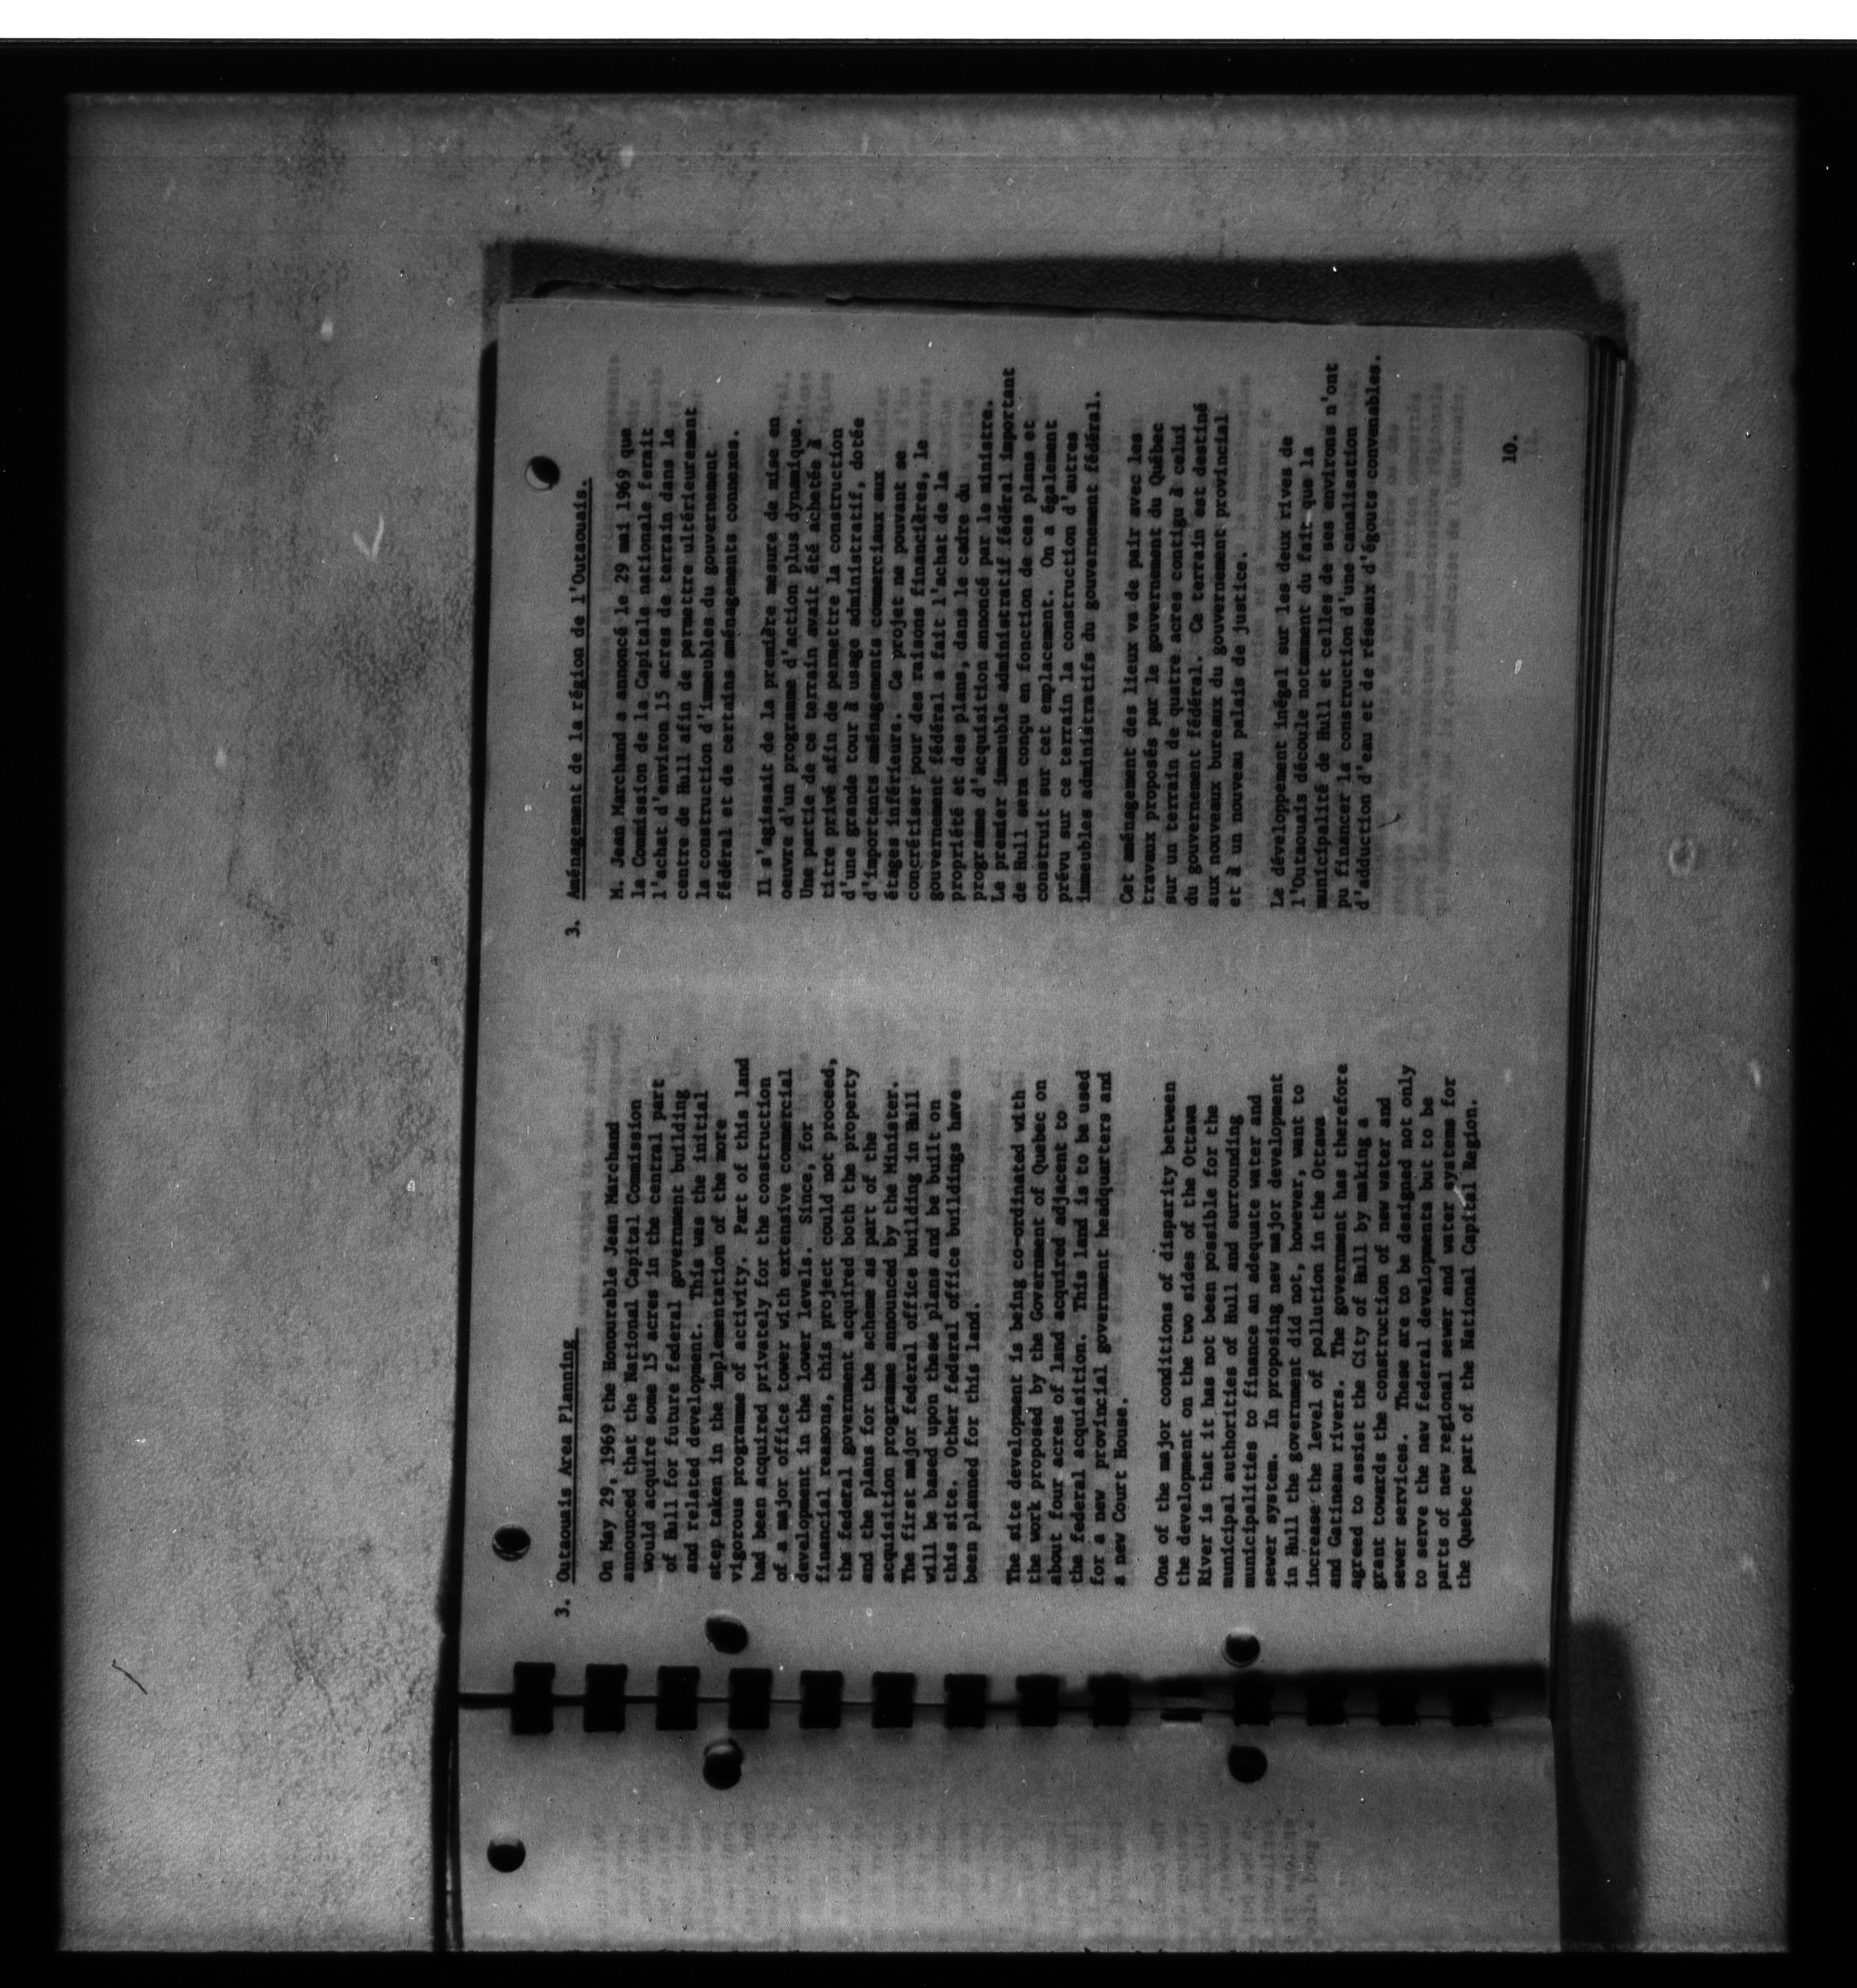 3. Outaouais Area Planning
On May 29, 1969 the Honourable Jean Marchand
announced that the National Capital Commission
would acquire some 15 acres in the central part
of Hull for future federal government building
and related development. This was the initial
step taken in the implementation of the more
vigorous programme of activity. Part of this land
had been acquired privately for the construction
of a major office tower with extensive commercial
development in the lower levels. Since, for
financial reasons, this project could not proceed,
the federal government acquired both the property
and the plans for the scheme as part of the
acquisition programme announced by the Minister.
The first major federal office building in Hull
will be based upon these plans and be built on
this site. Other federal office buildings have
been planned for this land.
The site development is being co-ordinated with
the work proposed by the Government of Quebec on
about four acres of land acquired adjacent to
the federal acquisition. This land is to be used
for a new provincial government headquarters and
a new Court House.
One of the major conditions of disparity between
the development on the two sides of the Ottawa
River is that it has not been possible for the
municipal authorities of Hull and surrounding
municipalities to finance an adequate water and
sewer system. In proposing new major development
in Hull the government did not, however, want to
increase the level of pollution in the Ottawa
and Gatineau rivers. The government has therefore
agreed to assist the City of Hull by making a
grant towards the construction of new water and
sewer services. These are to be designed not only
to serve the new federal developments but to be
parts of new regional sewer and water systems for
the Quebec part of the National Capital Region.
3. Aménagement de la région de l'Outaouais.
M. Jean Marchand a annoncé le 29 mai 1969 que
la Commission de la Capitale nationale ferait
l'achat d'environ 15 acres de terrain dans le
centre de Hull afin de permettre ultérieurement
la construction d'immeubles du gouvernement
fédéral et de certains aménagements connexes.
Il s'agissait de la première mesure de mise en
oeuvre d'un programme d'action plus dynamique.
Une partie de ce terrain avait été achetée à
titre privé afin de permettre la construction
d'une grande tour à usage administratif, dotée
d'importants aménagements commerciaux aux
étages inférieurs. Ce projet ne pouvant se
concrétiser pour des raisons financières, le
gouvernement fédéral a fait l'achat de la
propriété et des plans, dans le cadre du
programme d'acquisition annoncé par le ministre.
Le premier immeuble administratif fédéral important
de Hull sera conçu en fonction de ces plans et
construit sur cet emplacement. On a également
prévu sur ce terrain la construction d'autres
immeubles administratifs du gouvernement fédéral.
Cet aménagement des lieux va de pair avec les
travaux proposés par le gouvernement du Québec
sur un terrain de quatre acres contigu à celui
du gouvernement fédéral. Ce terrain est destiné
aux nouveaux bureaux du gouvernement provincial
et à un nouveau palais de justice.
Le développement inégal sur les deux rives de
l'Outaouais découle notamment du fait que la
municipalité de Hull et celles de ses environs n'ont
pu financer la construction d'une canalisation
d'adduction d'eau et de réseaux d'égouts convenables.
10.